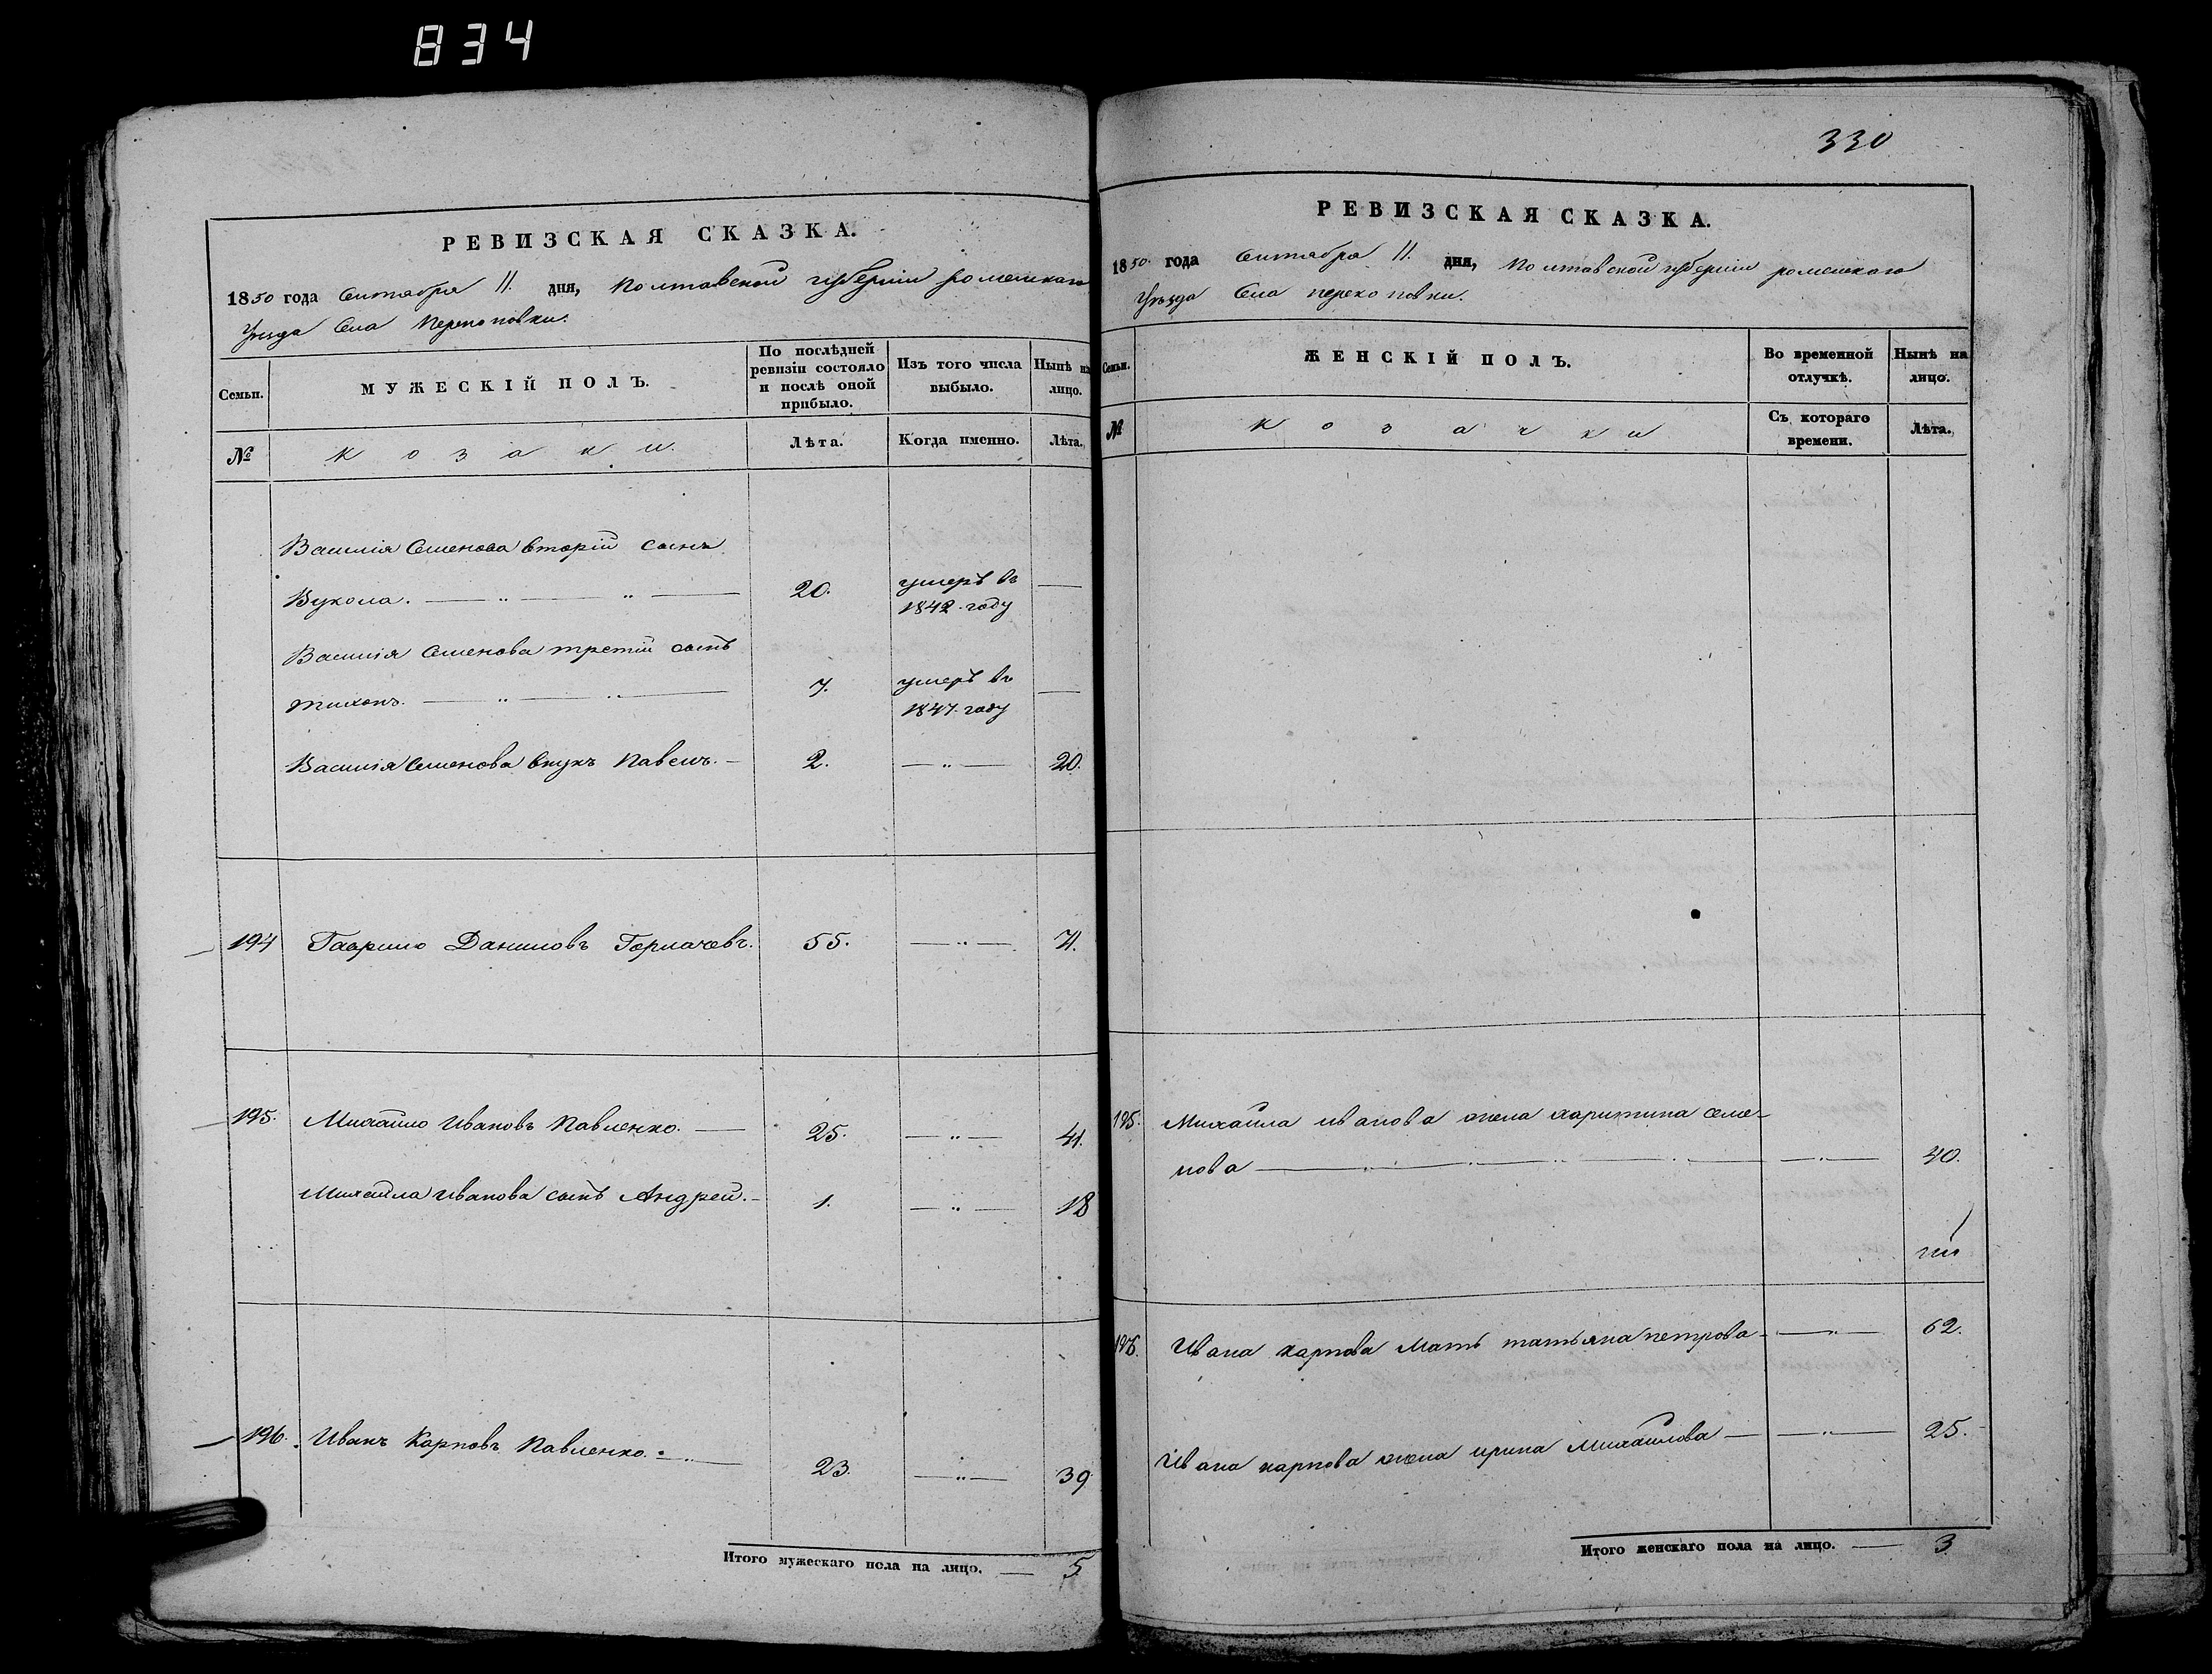 834
РЕВИЗСКАЯ СКАЗКА.
1850 года Сентября 11. дня, Полтавской губерніи роменскаго
Уѣзда Села Перекоповки.
Семьи.
МУЖЕСКІЙ ПОЛЪ.
По послѣдней ревизіи состояло и послѣ оной прибыло.
Изъ того числа выбыло.
Нынѣ на лицо.
№
козаки.
Лѣта.
Когда именно.
Лѣта.
Василія Семенова вторій сынъ
Вукола. 20. умеръ въ 1842. году
Василія Семенова третій сынъ
тихонъ. 7. умеръ въ 1847. году
Василія Семенова внукъ Павелъ. 2. 20.
194 Гаврило Даниловъ Горлачовъ. 55. 71.
195. Михайло Ивановъ Павленко. 25. 41.
Михайла Иванова сынъ Андрей. 1. 18
196. Иванъ Карповъ Павленко. 23. 39
Итого мужескаго пола на лицо. 5
330
РЕВИЗСКАЯ СКАЗКА.
1850. года Сентября 11. дня, Полтавской губерніи роменскаго
Уѣзда Села перекоповки.
Семьи.
ЖЕНСКІЙ ПОЛЪ.
Во временной отлучкѣ.
Нынѣ на лицо.
№
козачки
Съ котораго времени.
Лѣта.
195. Михайла иванова жена харитина семе-
нова 40.
196. Ивана карпова Мать татьяна петрова 62.
Ивана карпова жена ирина Михайлова 25.
Итого женскаго пола на лицо. 3